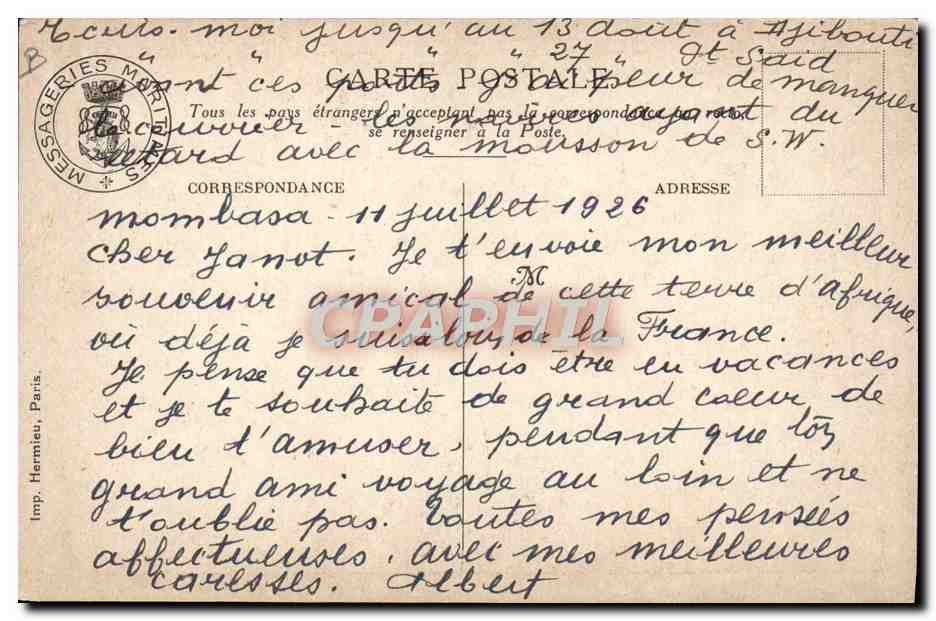 Ecris-moi jusqu'au 13 août à Djibouti
" " " " 27 " Pt Saïd
ces ports. J'ai peur de manquer
le courrier - les navires ayant du
retard avec la mousson de S.W.
B
MESSAGERIES MARITIMES
CARTE POSTALE
Tous les pays étrangers n'acceptant pas la correspondance au recto,
se renseigner à la Poste.
CORRESPONDANCE
ADRESSE
mombasa - 11 juillet 1926
cher Janot. Je t'envoie mon meilleur
souvenir amical de cette terre d'afrique,
où déjà je suis si loin de la France.
Je pense que tu dois être en vacances
et je te souhaite de grand coeur de
bien t'amuser, pendant que ton
grand ami voyage au loin et ne
t'oublie pas. Toutes mes pensées
affectueuses, avec mes meilleures
caresses. Albert
M
CPAPHIL
Imp. Hermieu, Paris.